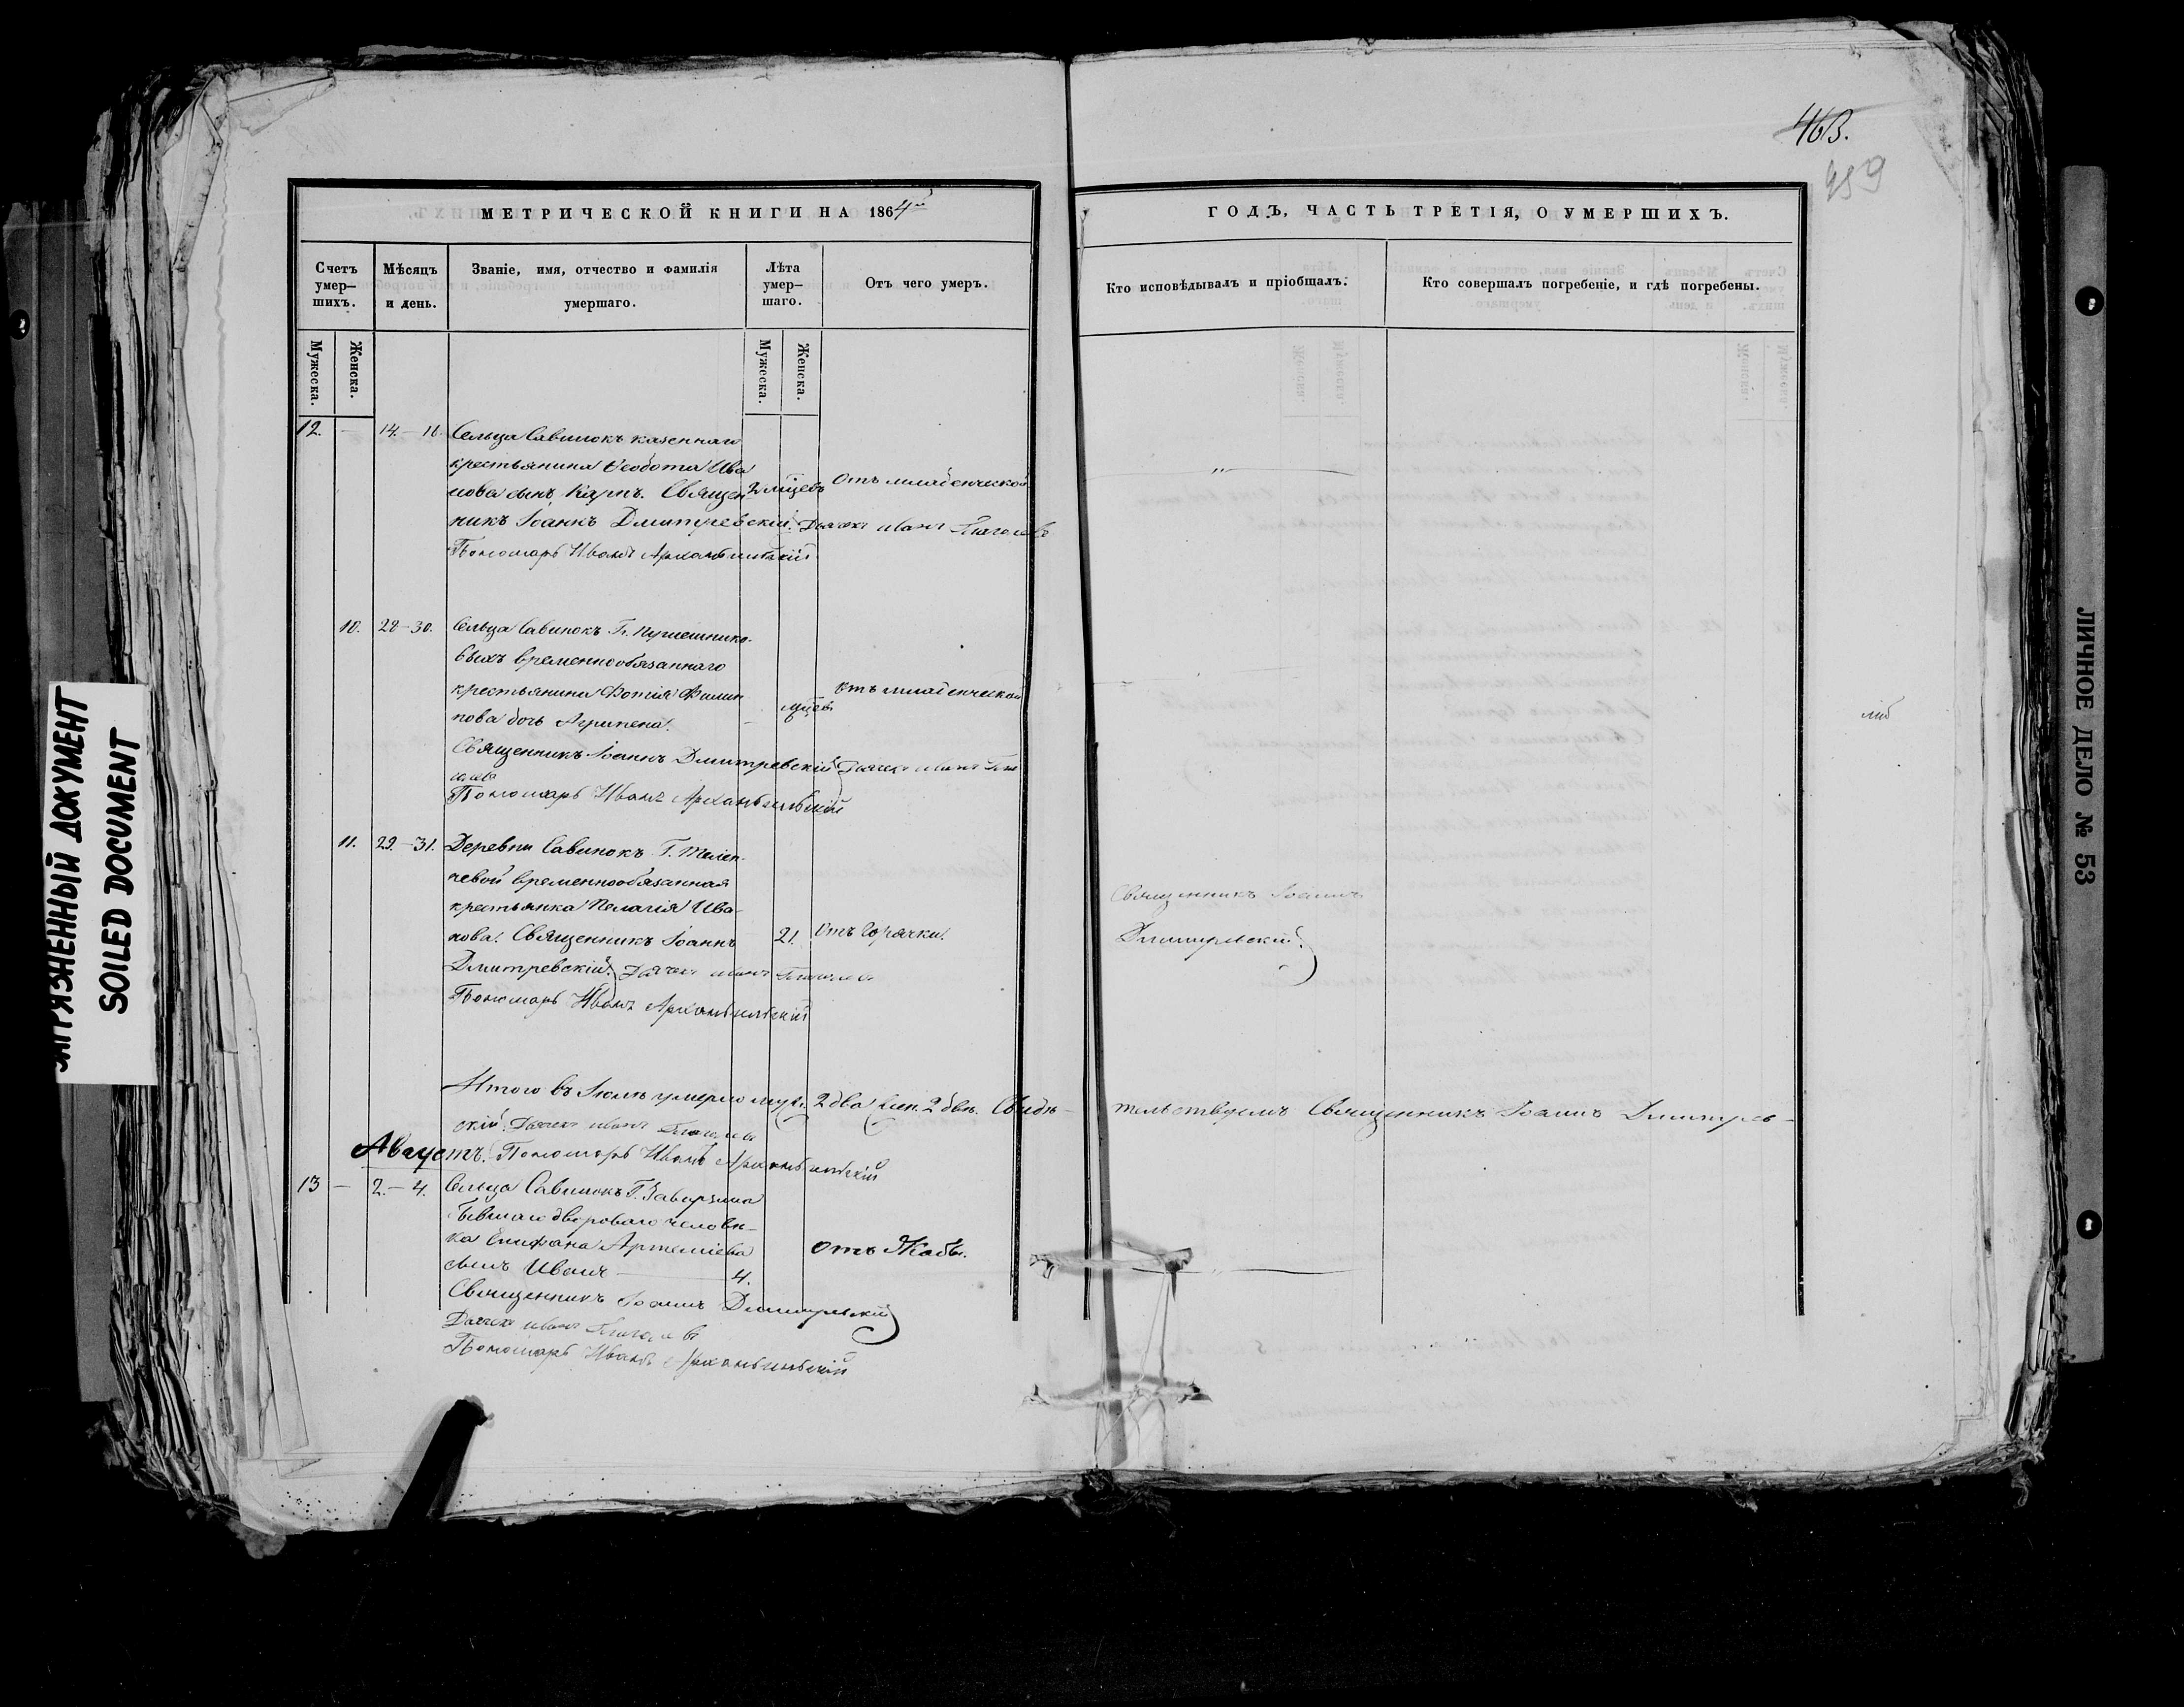 463.
959
МЕТРИЧЕСКОЙ КНИГИ НА 1864й
ГОДЪ, ЧАСТЬ ТРЕТІЯ, О УМЕРШИХЪ.
Счетъ умер-шихъ.
Мѣсяцъ и день.
Званіе, имя, отчество и фамилія умершаго.
Лѣта умер-шаго.
Отъ чего умеръ.
Кто исповѣдывалъ и пріобщалъ.
Кто совершалъ погребеніе, и гдѣ погребены.
Мужеска.
Женска.
Мужеска.
Женска.
12. — 14.—16. Сельца Савинокъ казеннаго
крестьянина Ѳеодота Ива
нова сынъ Карпъ. Священ 2 мѣсцевъ Отъ младенческой
никъ Іоаннъ Дмитревскій. Дьячекъ иванъ
Пономарь Иванъ Архангельскій
10. 28—30. Сельца Савинокъ Г.
выхъ временнообязаннаго
крестьянина Фотія Филип Отъ младенческой
пова дочь Агрипена. —
Священникъ Іоаннъ Дмитревскій Дьячекъ иванъ
Пономарь Иванъ Архангельскій
11. 29.—31. Деревни Савинокъ Г.
чевой временнообязанная
крестьянка Пелагія Ива- Священникъ Іоаннъ
нова. Священникъ Іоаннъ 21. Отъ горячки. Дмитревскій.
Дмитревскій. Дьячекъ иванъ
Пономарь Иванъ Архангельскій
Итого въ Іюлѣ умерло муж. 2 два жен. 2 двѣ. Свидѣ- тельствуемъ Священникъ Іоаннъ Дмитрев-
скій. Дьячекъ иванъ
Августъ. Пономарь Иванъ Архангельскій
13 — 2.—4. Сельца Савинокъ Г.
бывшаго двороваго человѣ-
ка Епифана Артеміева Отъ Жабы.
сынъ Иванъ 4.
Священникъ Іоаннъ Дмитревскій
Дьячекъ иванъ
Пономарь Иванъ Архангельскій
ЗАГРЯЗНЕННЫЙ ДОКУМЕНТ
SOILED DOCUMENT
ЛИЧНОЕ ДЕЛО № 53